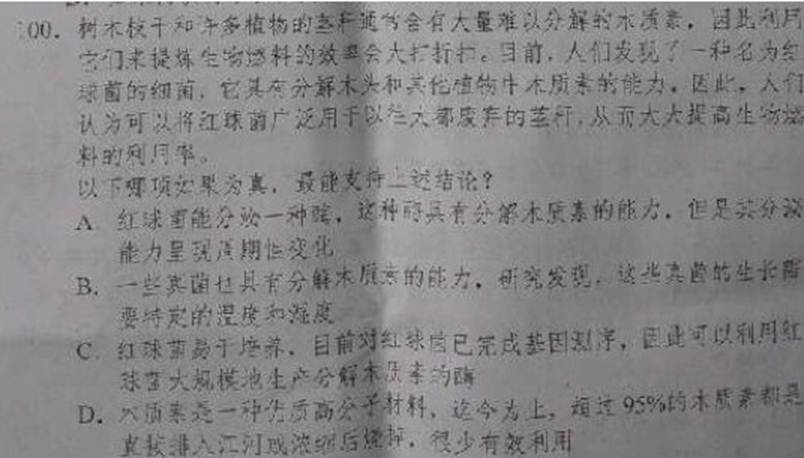 100. 树木枝干和许多植物的茎秆通常含有大量难以分解的木质素，因此利用
它们来提炼生物燃料的效率会大打折扣。目前，人们发现了一种名为红
球菌的细菌，它具有分解木头和其他植物中木质素的能力。因此，人们
认为可以将红球菌广泛用于以往大都废弃的茎秆，从而大大提高生物燃
料的利用率。
以下哪项如果为真，最能支持上述结论？
A. 红球菌能分泌一种酶，这种酶具有分解木质素的能力。但是其分泌
能力呈现周期性变化
B. 一些真菌也具有分解木质素的能力。研究发现，这些真菌的生长需
要特定的温度和湿度
C. 红球菌易于培养，目前对红球菌已完成基因测序，因此可以利用红
球菌大规模地生产分解木质素的酶
D. 木质素是一种优质高分子材料，迄今为止，超过95%的木质素都是
直接排入江河或浓缩后烧掉，很少有效利用